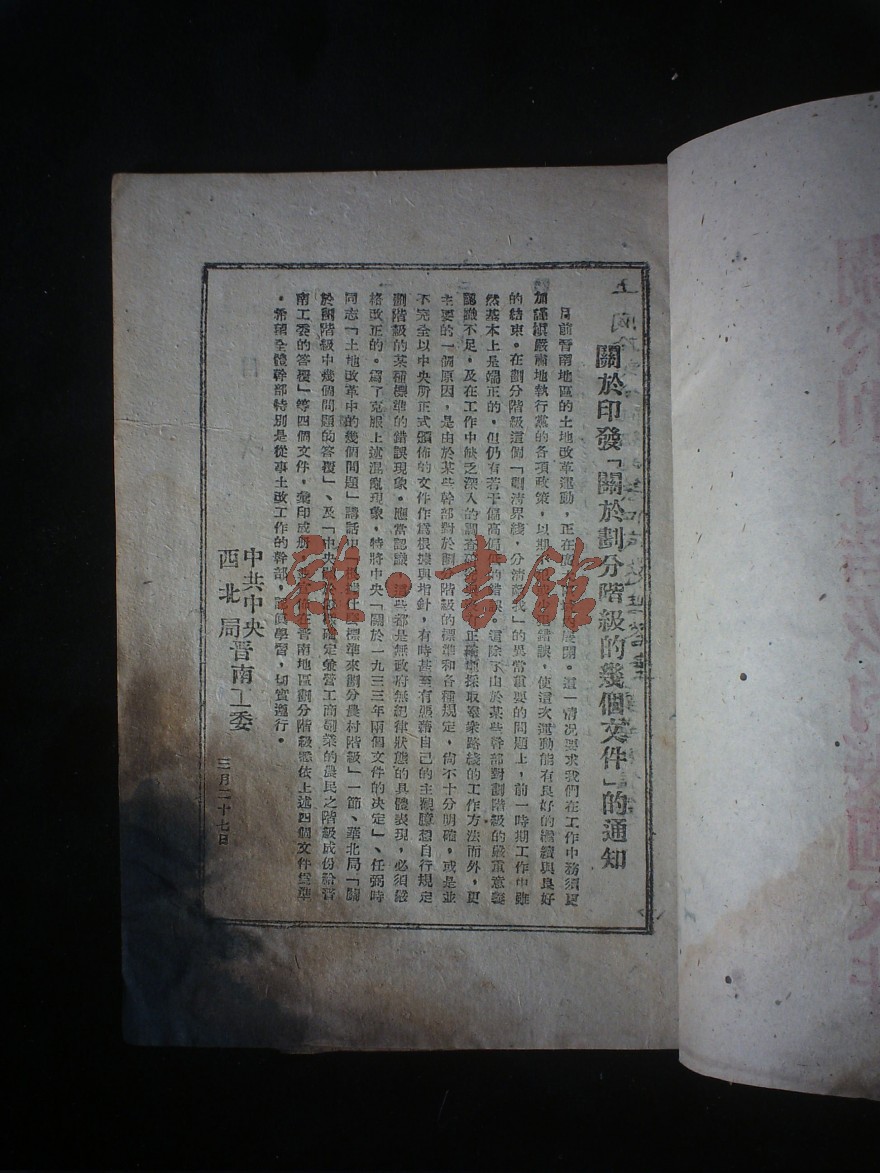 關於印發「關於劃分階級的幾個文件」的通知
目前晉南地區的土地改革運動，正在展開。這一情况要求我們在工作中務須更
加謹慎嚴肅地執行黨的各項政策，以期錯誤，使這次運動能有良好的繼續與良好
的結束。在劃分階級這個「劃清界綫，分清敵我」的異常重要的問題上，前一時期工作中雖
然基本上是端正的，但仍有若干偏高偏的錯誤。這除了由於某些幹部對劃階級的嚴重意義
認識不足，及在工作中缺乏深入的調查正確採取羣衆路綫的工作方法而外，更
主要的一個原因，是由於某些幹部對於劃階級的標準和各種規定，尙不十分明確，或是並
不完全以中央所正式頒佈的文件作爲根據與指針，有時甚至有憑藉自己的主觀臆想自行規定
劃階級的某種標準的錯誤現象。應當認識，這些都是無政府無紀律狀態的具體表現，必須嚴
格改正的。爲了克服上述混亂現象，特將中央「關於一九三三年兩個文件的决定」、任弼時
同志「土地改革中的幾個問題」講話中「根據什標準來劃分農村階級」一節、華北局「關
於劃階級中幾個問題的答覆」、及「中央關於確定兼營工商副業的農民之階級成份給晉
南工委的答覆」等四個文件，彙印成册，在晉南地區劃分階級應依上述四個文件爲準
。希望全體幹部特別是從事土改工作的幹部，認眞學習，切實遵行。
中共中央
西北局晋南工委
三月二十七日
雅·書館